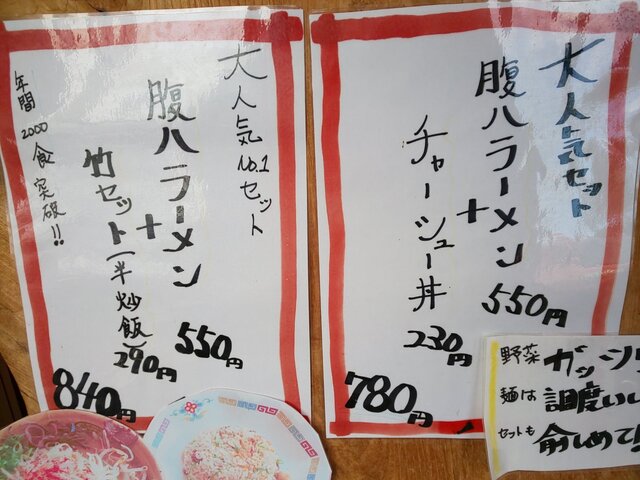 大人気セット
腹八ラーメン 550円
+
チャーシュー丼 230円
780円
大人気No.1セット
腹八ラーメン 550円
+
竹セット(半炒飯) 290円
840円
年間2000食突破!!
野菜ガッシリ
麺は
セットも